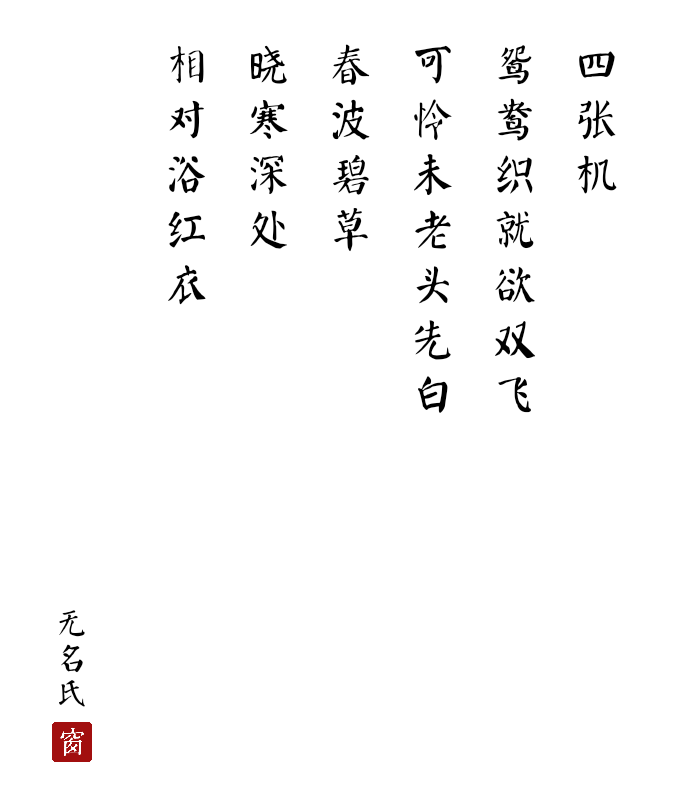 四张机
鸳鸯织就欲双飞
可怜未老头先白
春波碧草
晓寒深处
相对浴红衣
无名氏
窗